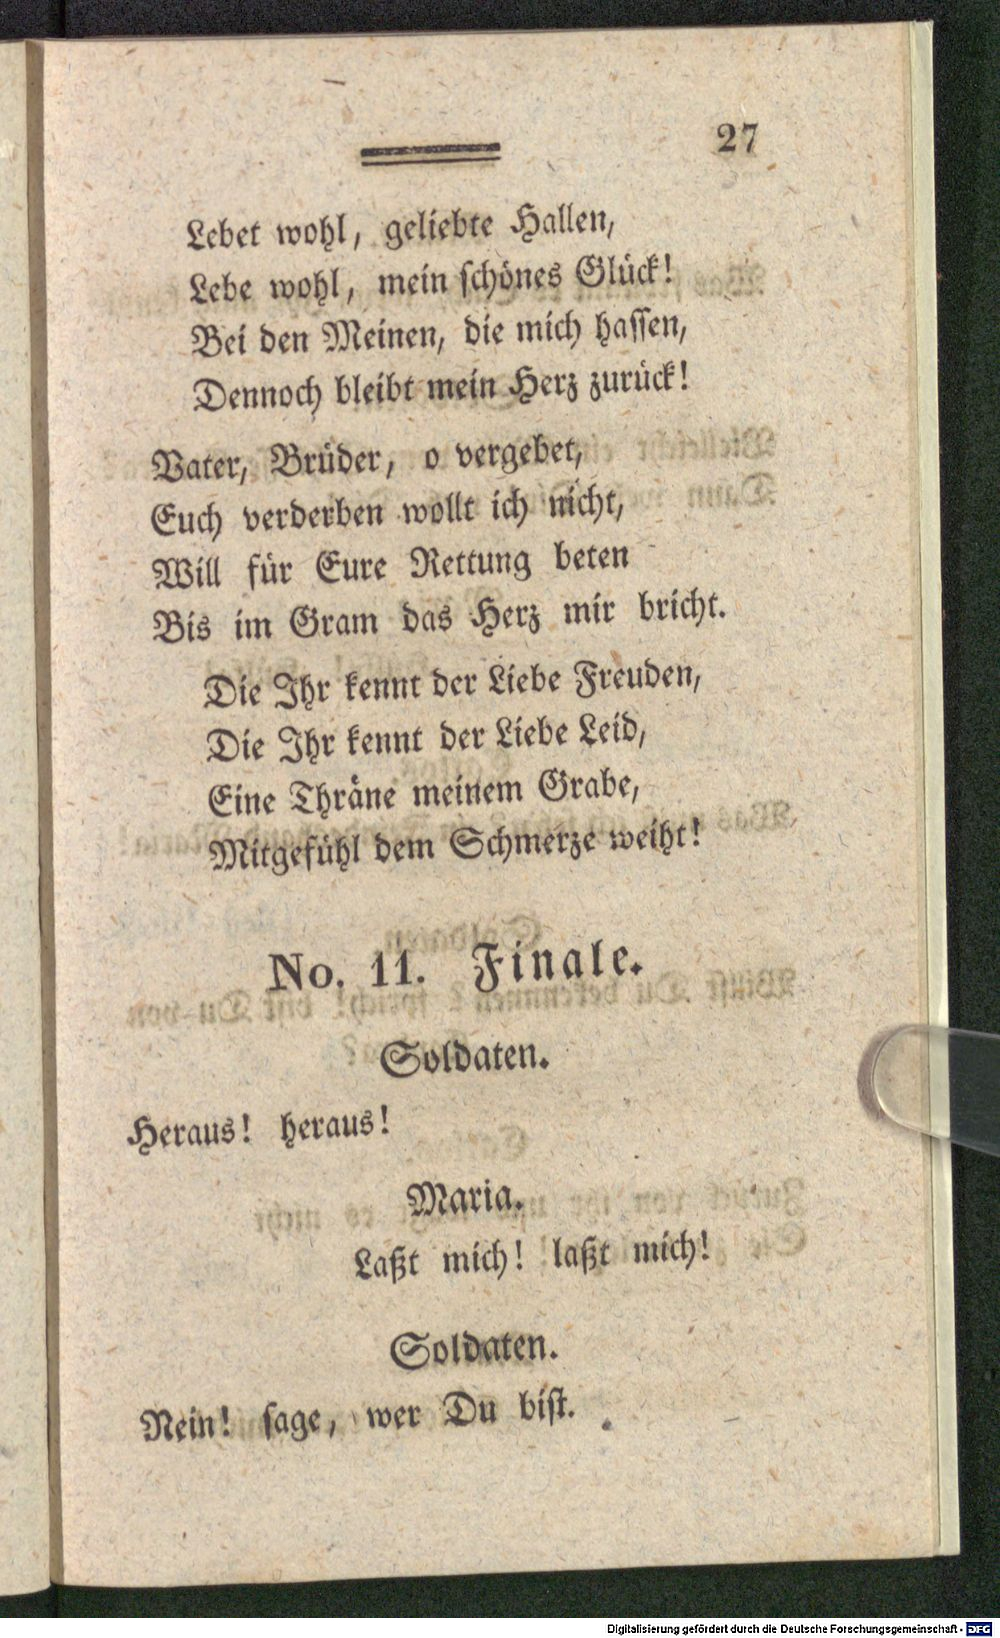 27
Lebet wohl, geliebte Hallen,
Lebe wohl, mein schönes Glück!
Bei den Meinen, die mich hassen,
Dennoch bleibt mein Herz zurück!
Vater, Brüder, o vergebet,
Euch verderben wollt ich nicht,
Will für Eure Rettung beten
Bis im Gram das Herz mir bricht.
Die Ihr kennt der Liebe Freuden,
Die Ihr kennt der Liebe Leid,
Eine Thräne meinem Grabe,
Mitgefühl dem Schmerze weiht!
No. 11. Finale.
Soldaten.
Heraus! heraus!
Maria.
Laßt mich! laßt mich!
Soldaten.
Nein! sage, wer Du bist.
Digitalisierung gefördert durch die Deutsche Forschungsgemeinschaft - DFG